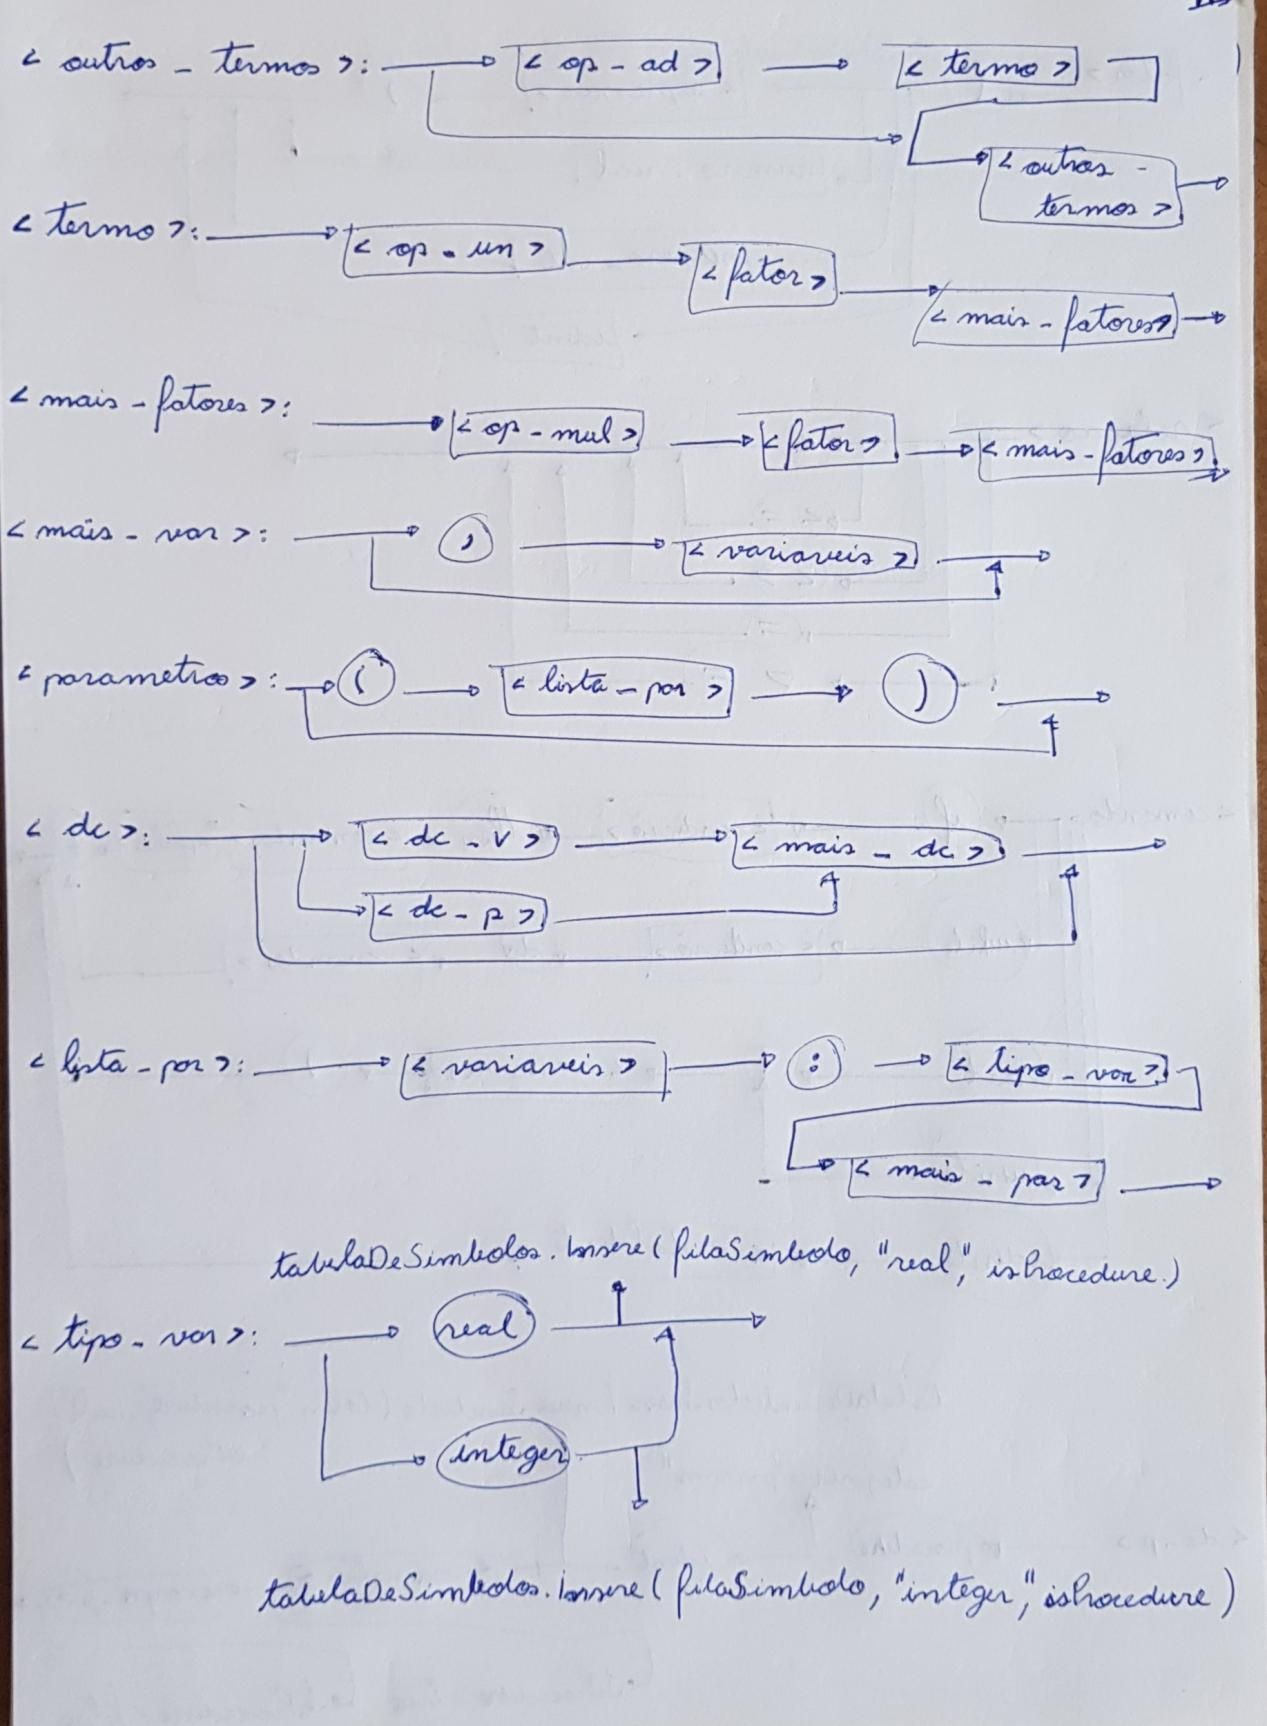 < outros - termos >: < op - ad > < termo >
< outros - termos >
< termo >: < op - un > < fator >
< mais - fatores >
< mais - fatores >: < op - mul > < fator > < mais - fatores >
< mais - var >: , < variaveis >
< parametros >: ( < lista - par > )
< dc >: < dc - v > < mais - dc >
< dc - p >
< lista - par >: < variaveis > : < tipo - var >
< mais - par >
tabelaDeSimbolos.Insere(filaSimbolo, "real", isProcedure)
< tipo - var >: real
integer
tabelaDeSimbolos.Insere(filaSimbolo, "integer", isProcedure)